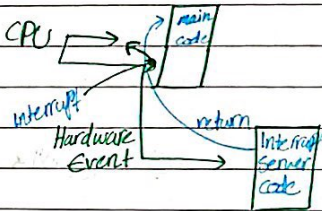 main
code
CPU
Interrupt
Hardware
Event
return
Interrupt
Server
code